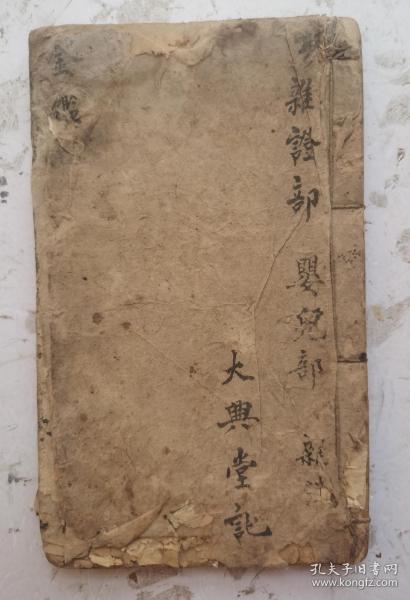 雜證部 嬰兒部 雜
大興堂記
金鑑
孔夫子旧书网
www.kongfz.com